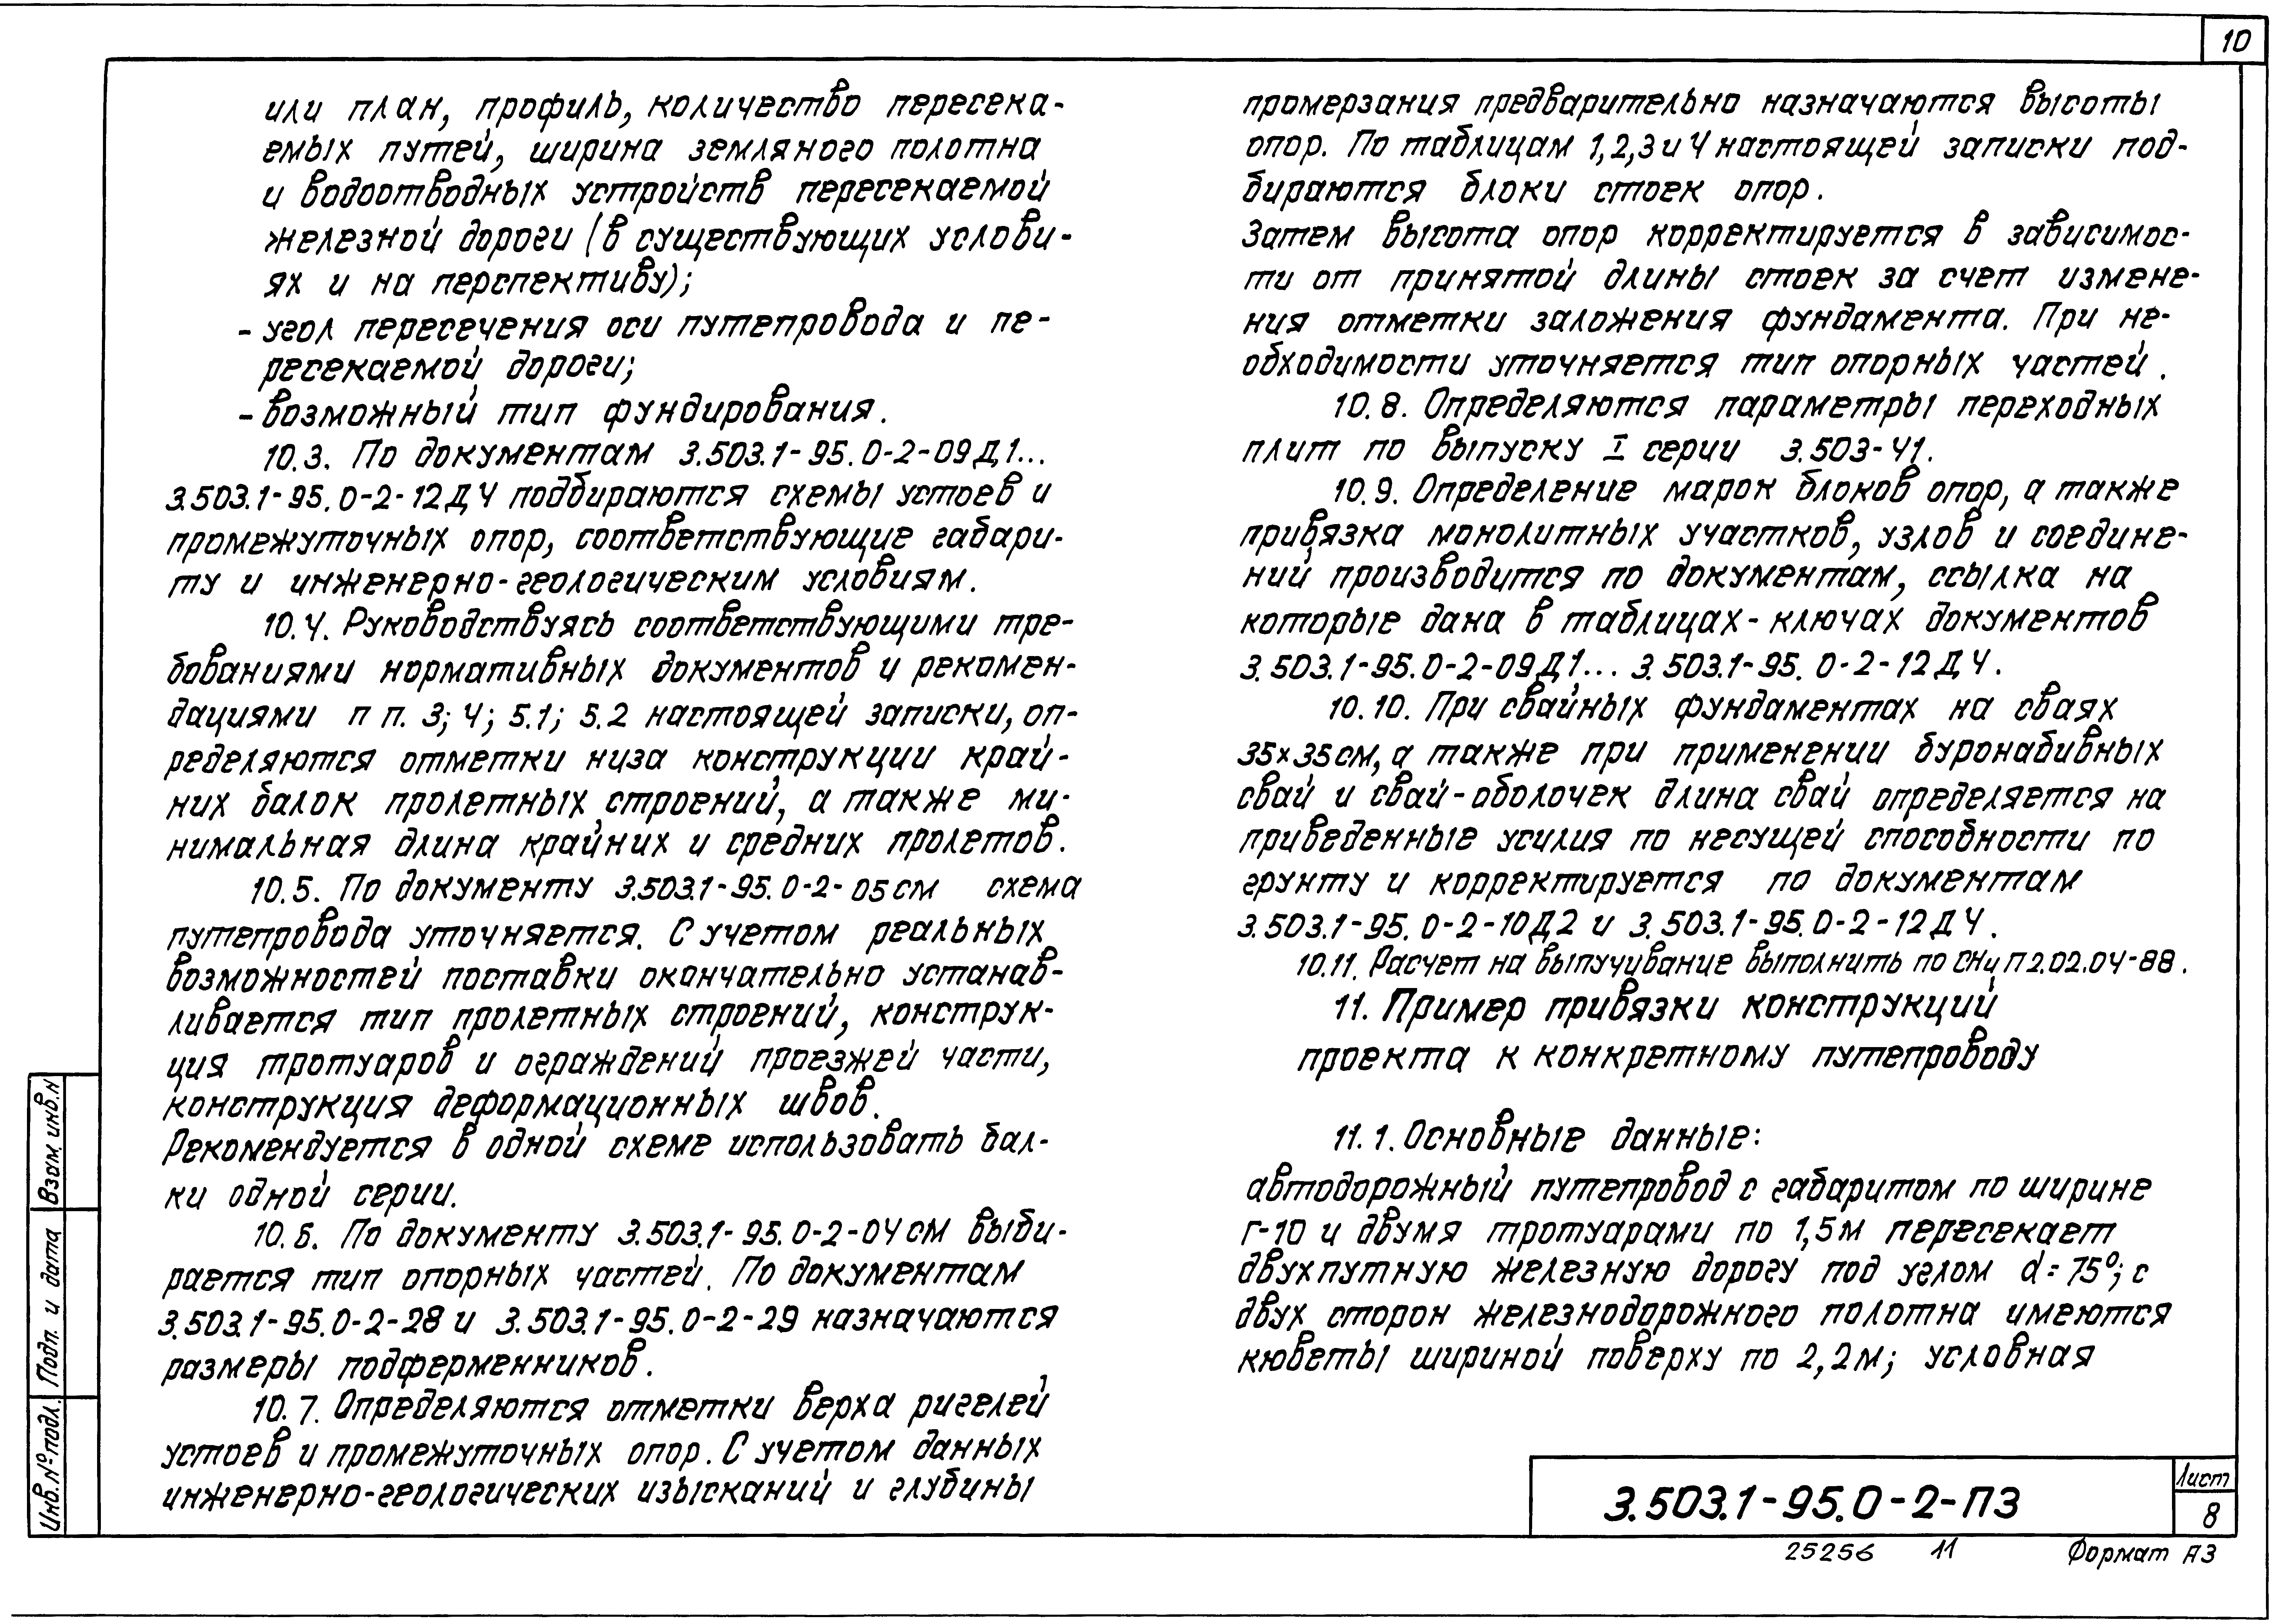 10
или план, профиль, количество пересека-
емых путей, ширина земляного полотна
и водоотводных устройств пересекаемой
железной дороги (в существующих услови-
ях и на перспективу);
- угол пересечения оси путепровода и пе-
ресекаемой дороги;
- возможный тип фундирования.
10.3. По документам 3.503.1-95.0-2-09Д1...
3.503.1-95.0-2-12Д4 подбираются схемы устоев и
промежуточных опор, соответствующие габари-
ту и инженерно-геологическим условиям.
10.4. Руководствуясь соответствующими тре-
бованиями нормативных документов и рекомен-
дациями п п. 3; 4; 5.1; 5.2 настоящей записки, оп-
ределяются отметки низа конструкции край-
них балок пролетных строений, а также ми-
нимальная длина крайних и средних пролетов.
10.5. По документу 3.503.1-95.0-2-05см схема
путепровода уточняется. С учетом реальных
возможностей поставки окончательно устанав-
ливается тип пролетных строений, конструк-
ция тротуаров и ограждений проезжей части,
конструкция деформационных швов.
Рекомендуется в одной схеме использовать бал-
ки одной серии.
10.6. По документу 3.503.1-95.0-2-04см выби-
рается тип опорных частей. По документам
3.503.1-95.0-2-28 и 3.503.1-95.0-2-29 назначаются
размеры подферменников.
10.7. Определяются отметки верха ригелей
устоев и промежуточных опор. С учетом данных
инженерно-геологических изысканий и глубины
промерзания предварительно назначаются высоты
опор. По таблицам 1,2,3 и 4 настоящей записки под-
бираются блоки стоек опор.
Затем высота опор корректируется в зависимос-
ти от принятой длины стоек за счет измене-
ния отметки заложения фундамента. При не-
обходимости уточняется тип опорных частей.
10.8. Определяются параметры переходных
плит по выпуску I серии 3.503-41.
10.9. Определение марок блоков опор, а также
привязка монолитных участков, узлов и соедине-
ний производится по документам, ссылка на
которые дана в таблицах-ключах документов
3.503.1-95.0-2-09Д1... 3.503.1-95.0-2-12Д4.
10.10. При свайных фундаментах на сваях
35×35см, а также при применении буронабивных
свай и свай-оболочек длина свай определяется на
приведенные усилия по несущей способности по
грунту и корректируется по документам
3.503.1-95.0-2-10Д2 и 3.503.1-95.0-2-12Д4.
10.11. Расчет на выпучивание выполнить по СНиП 2.02.04-88.
11. Пример привязки конструкций
проекта к конкретному путепроводу
11.1. Основные данные:
автодорожный путепровод с габаритом по ширине
Г-10 и двумя тротуарами по 1,5м пересекает
двухпутную железную дорогу под углом α=75°; с
двух сторон железнодорожного полотна имеются
кюветы шириной поверху по 2,2м; условная
Взам. инв.N
Подп. и дата
Инв.№подл.
3.503.1-95.0-2-ПЗ
Лист
8
25256 11 Формат А3